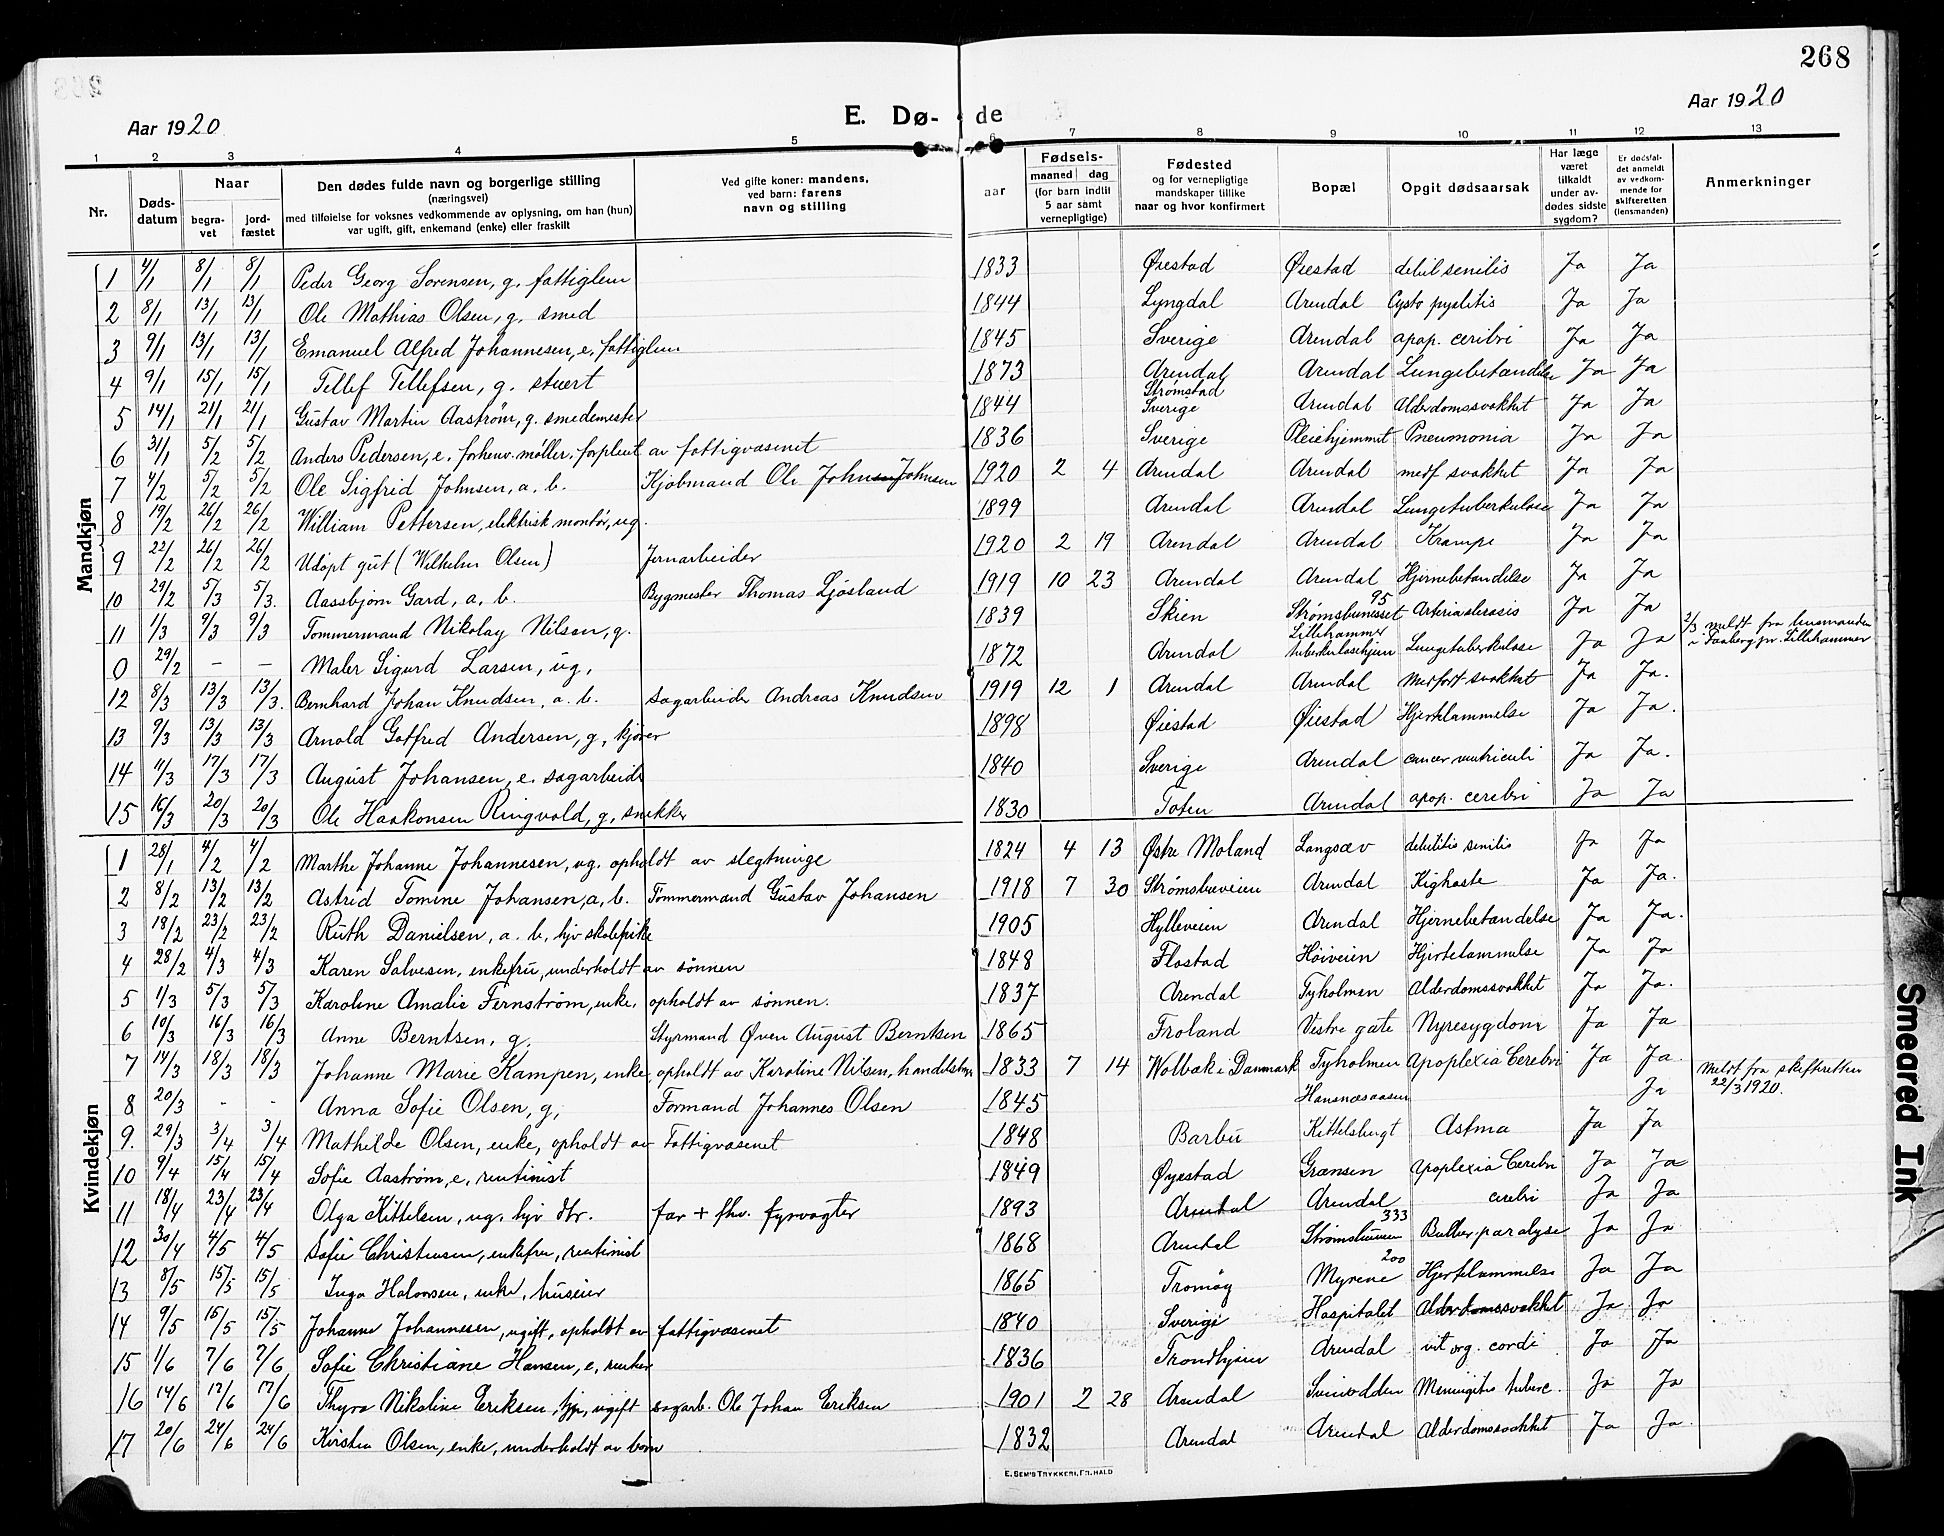 268
Aar 1920
E. Dø- de
Aar 1920
1 2 3 4 5 6 7 8 9 10 11 12 13
Nr.
Døds-
datum
Naar
begra-
vet
jord-
fæstet
Den dødes fulde navn og borgerlige stilling
(næringsvei)
med tilføielse for voksnes vedkommende av oplysning, om han (hun)
var ugift, gift, enkemand (enke) eller fraskilt
Ved gifte koner: mandens,
ved barn: farens
navn og stilling
aar
Fødsels-
maaned dag
(for barn indtil
5 aar samt
vernepligtige)
Fødested
og for vernepligtige
mandskaper tillike
naar og hvor konfirmert
Bopæl
Opgit dødsaarsak
Har læge
været
tilkaldt
under av-
dødes sidste
sygdom?
Er dødsfal-
det anmeldt
av vedkom-
mende for
skifteretten
(lensmanden)
Anmerkninger
Mandkjøn
1 4/1 8/1 8/1 Peder Georg Sorensen, g. fattiglem 1833 Øiestad Øiestad debil senilis Ja Ja
2 8/1 13/1 13/1 Ole Mathias Olsen, g. smed 1844 Lyngdal Arendal Cysto pyelitis Ja Ja
3 9/1 13/1 13/1 Emanuel Alfred Johannesen, e. fattiglem 1845 Sverige Arendal apop. ceribri Ja Ja
4 9/1 15/1 15/1 Tellef Tellefsen, g. stuert 1873 Arendal Arendal Lungebetændelse Ja Ja
5 14/1 21/1 21/1 Gustav Martin Aastrøm, g. smedemester 1844 Strømstad Sverige Arendal Alderdomssvakhet Ja Ja
6 31/1 5/2 5/2 Anders Pedersen, e. forhenv. møller, forpleiet av fattigvæsenet 1836 Sverige Pleiehjemmet Pneumonia Ja Ja
7 4/2 5/2 5/2 Ole Sigfrid Johnsen, a. b. Kjøbmand Ole Johnsen Johnsen 1920 2 4 Arendal Arendal medf svakhet Ja Ja
8 19/2 26/2 26/2 William Pettersen, elektrisk montør, ug. 1899 Arendal Arendal Lungetuberkulose Ja Ja
9 22/2 26/2 26/2 Udøpt gut (Wilhelm Olsen) Jernarbeider 1920 2 19 Arendal Arendal Krampe Ja Ja
10 29/2 5/3 5/3. Aassbjørn Gard, a. b. Bygmester Thomas Ljøsland 1919 10 23 Arendal Arendal Hjernebetændelse Ja Ja
11 1/3 9/3 9/3 Tømmermand Nikolay Nilsen, g. 1839 Skien 95 Arteriasclerosis Ja Ja
0 29/2 - - Maler Sigurd Larsen, ug, 1872 Arendal Lillehammer tuberkulosehjem Lungetuberkulose Ja Ja 2/3 meldt fra lensmanden i Faaberg pr. Lillehammer
12 8/3 13/3 13/3. Bernhard Johan Knudsen, a. b. sagarbeider Andreas Knudsen 1919 12 1 Arendal Arendal Medfødt svakhet Ja Ja.
13 9/3 13/3 13/3 Arnold Gotfred Andersen, g, kjører 1898 Øiestad Øiestad Hjertelammelse Ja Ja.
14 11/3 17/3 17/3 August Johansen, e. sagarbeider 1840 Sverige Arendal cancer ventriculi Ja Ja.
15 16/3 20/3 20/3 Ole Haakonsen Ringvold, g, snekker 1830 Toten Arendal apop. cerebri Ja Ja
Kvindekjøn
1 28/1 4/2 4/2 Marthe Johanne Johannesen, ug. opholdt av slegtninge 1824 4 13 Østre Moland Langsæv debilitis senilis Ja Ja
2 8/2 13/2 13/2 Astrid Tomine Johansen, a, b. Tømmermand Gustav Johansen 1918 7 30 Strømsbuveien Arendal Kighoste Ja Ja.
3 18/2 23/2 23/2 Ruth Danielsen, a. b, hjv skolepike 1905 Hylleveien Arendal Hjernebetændelse Ja Ja.
4 28/2 4/3 4/3 Karen Salvesen, enkefru, underholdt av sønnen 1848 Flostad Høiveien Hjertelammelse Ja Ja
5 1/3 5/3 5/3 Karoline Amalie Fernstrøm, enke, opholdt av sønnen. 1837 Arendal Tyholmen Alderdomssvakhet Ja Ja.
6 10/3 16/3 16/3 Anne Berntsen, g. Styrmand Øven August Berntsen 1865 Froland Vestre gate Nyresygdom Ja Ja
7 14/3 18/3 18/3 Johanne Marie Kampen, enke, opholdt av Karoline Nilsen, 1833 7 14 Wolbæk i Danmark Tyholmen Apoplexia Cerebri Ja Ja.
8 20/3 - - Anna Sofie Olsen, g, Formand Johannes Olsen 1845 Ja Meldt fra skifteretten 22/3 1920.
9. 29/3 3/4 3/4 Mathilde Olsen, enke, opholdt av Fattigvæsenet 1848 Barbu Kittelsbugt Astma Ja Ja
10 9/4 15/4 15/4 Sofie Aastrøm, e, rentinist 1849 Øyestad Grænsen Apoplexia Cerebri Ja Ja
11 18/4 23/4 23/4 Olga Kittelsen, ug. hjv dtr. far + fhv. fyrvogter 1893 Arendal Arendal cerebri Ja Ja
12 30/4 4/5 4/5 Sofie Christensen, enkefru, rentinist 1868 Arendal 333 Bulbær paralyse Ja Ja
13 8/5 15/5 15/5 Inga Halvorsen, enke, huseier 1865 Tromøy Myrene 200 Hjertelammelse Ja Ja
14 9/5 15/5 15/5 Johanne Johannesen, ugift, opholdt av fattigvæsenet 1840 Sverige Hospitalet Alderdomssvakhet Ja Ja
15 1/6 7/6 7/6 Sofie Christiane Hansen, e, 1836 Trondhjem Arendal vit. org. cordi Ja Ja
16 14/6 17/6 17/6 Thyra Nikoline Eriksen, hjp, ugift sagarb. Ole Johan Eriksen 1901 2 28 Arendal Svinodden Meningitis tuberc. Ja Ja
17 20/6 24/6 24/6 Kirsten Olsen, enke, underholdt av børn 1832 Arendal Arendal Alderdomssvakhet Ja Ja.
E. SEM'S TRYKKERI, FR. HALD
Smeared Ink